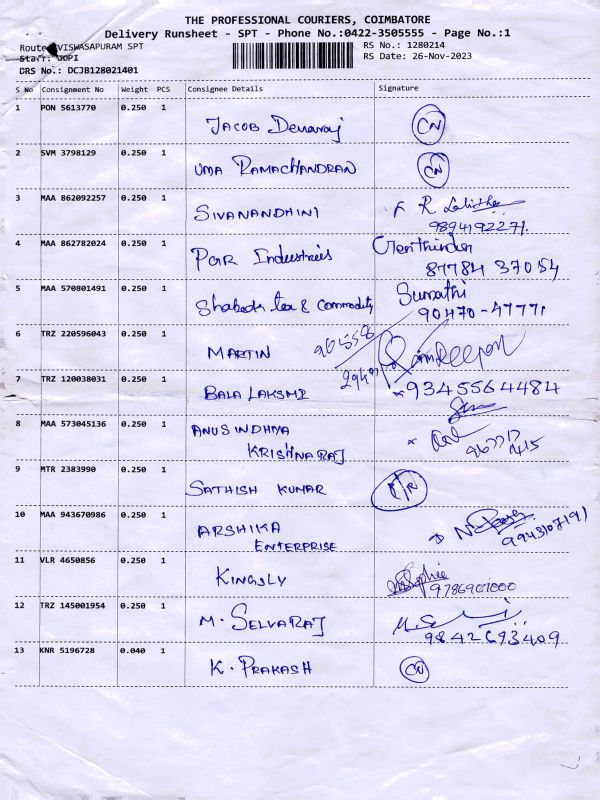 THE PROFESSIONAL COURIERS, COIMBATORE
Delivery Runsheet - SPT - Phone No.:0422-3505555 - Page No.:1
Route VISWASAPURAM SPT RS No.: 1280214
Staff: GOPI RS Date: 26-Nov-2023
DRS No.: DCJB128021401
S No Consignment No Weight PCS Consignee Details Signature
1 PON 5613770 0.250 1
JACOB Devaraj CN
2 SVM 3798129 0.250 1
UMA RAMACHANDRAN CN
3 MAA 862092257 0.250 1
SIVANANDHINI R Lalitha
9894192271
4 MAA 862782024 0.250 1
PGR Industries
87784 37054
5 MAA 570801491 0.250 1 Sumathi
tea & commodity 90470-47771
6 TRZ 220596043 0.250 1
MARTIN 96558
29401
7 TRZ 120038031 0.250 1
BALA LAKSMI 9345564484
8 MAA 573045136 0.250 1
ANUSINDHYA
KRISHNARAJ
9 MTR 2383990 0.250 1
SATHISH KUMAR
10 MAA 943670986 0.250 1
ARSHIKA
ENTERPRISE
11 VLR 4650856 0.250 1
KINGSLY Sophie
9786907000
12 TRZ 145001954 0.250 1
M. SELVARAJ
9842693409
13 KNR 5196728 0.040 1
K. PRAKASH CN